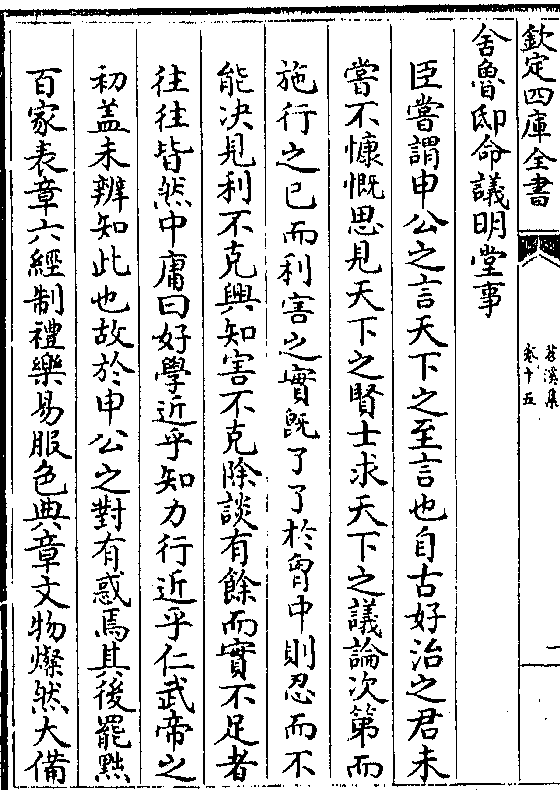 欽定四庫全書
苕溪集
卷十五
一
舍魯邸命議明堂事
臣嘗謂申公之言天下之至言也自古好治之君未
嘗不慷慨思見天下之賢士求天下之議論次第而
施行之已而利害之實既了了於胷中則忍而不
能決見利不克興知害不克除談有餘而實不足者
往往皆然中庸曰好學近乎知力行近乎仁武帝之
初蓋未辨知此也故於申公之對有惑焉其後罷黜
百家表章六經制禮樂易服色典章文物燦然大備